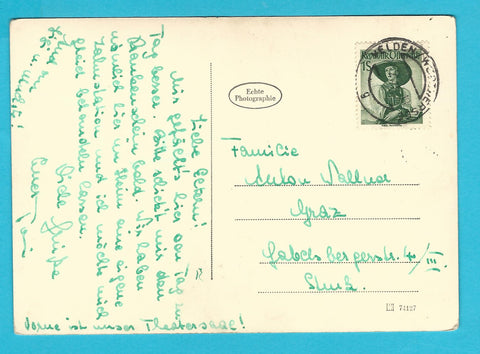 Liebe Eltern!
Mir gefällt's hier von Tag zu
Tag besser. Bitte schickt mir den
Krankenschein bald. Wir haben
nämlich hier im Heim eine eigene
Zahnstation und ich möchte mich
gleich behandeln lassen.
Viele Grüße
Euer
Vorne ist unser Theatersaal!
Echte
Photographie
REPUBLIK ÖSTERREICH
Familie
Anton
Graz
Gabelsbergerstr. 4/III.
Stmk.
74127